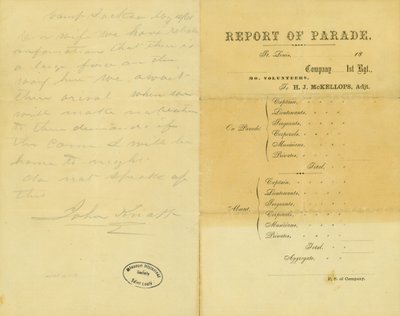 Camp Jackson May 10/61
Dear wife We have reliable
information that there is
a large force on the
way here We await
their arrival when we
will make
to their demands if
this Comes I will be
home to night.
do not speak of
this
John Knapp
MISSOURI HISTORICAL
Society
SAINT LOUIS
REPORT OF PARADE.
St. Louis, 18
Company 1st Rgt.,
MO. VOLUNTEERS,
To H. J. McKELLOPS, Adjt.
On Parade:
Captain,
Lieutenants,
Sergeants,
Corporals,
Musicians,
Privates,
Total,
Absent,
Captain,
Lieutenants,
Sergeants,
Corporals,
Musicians,
Privates,
Total,
Aggregate,
O. S. of Company.